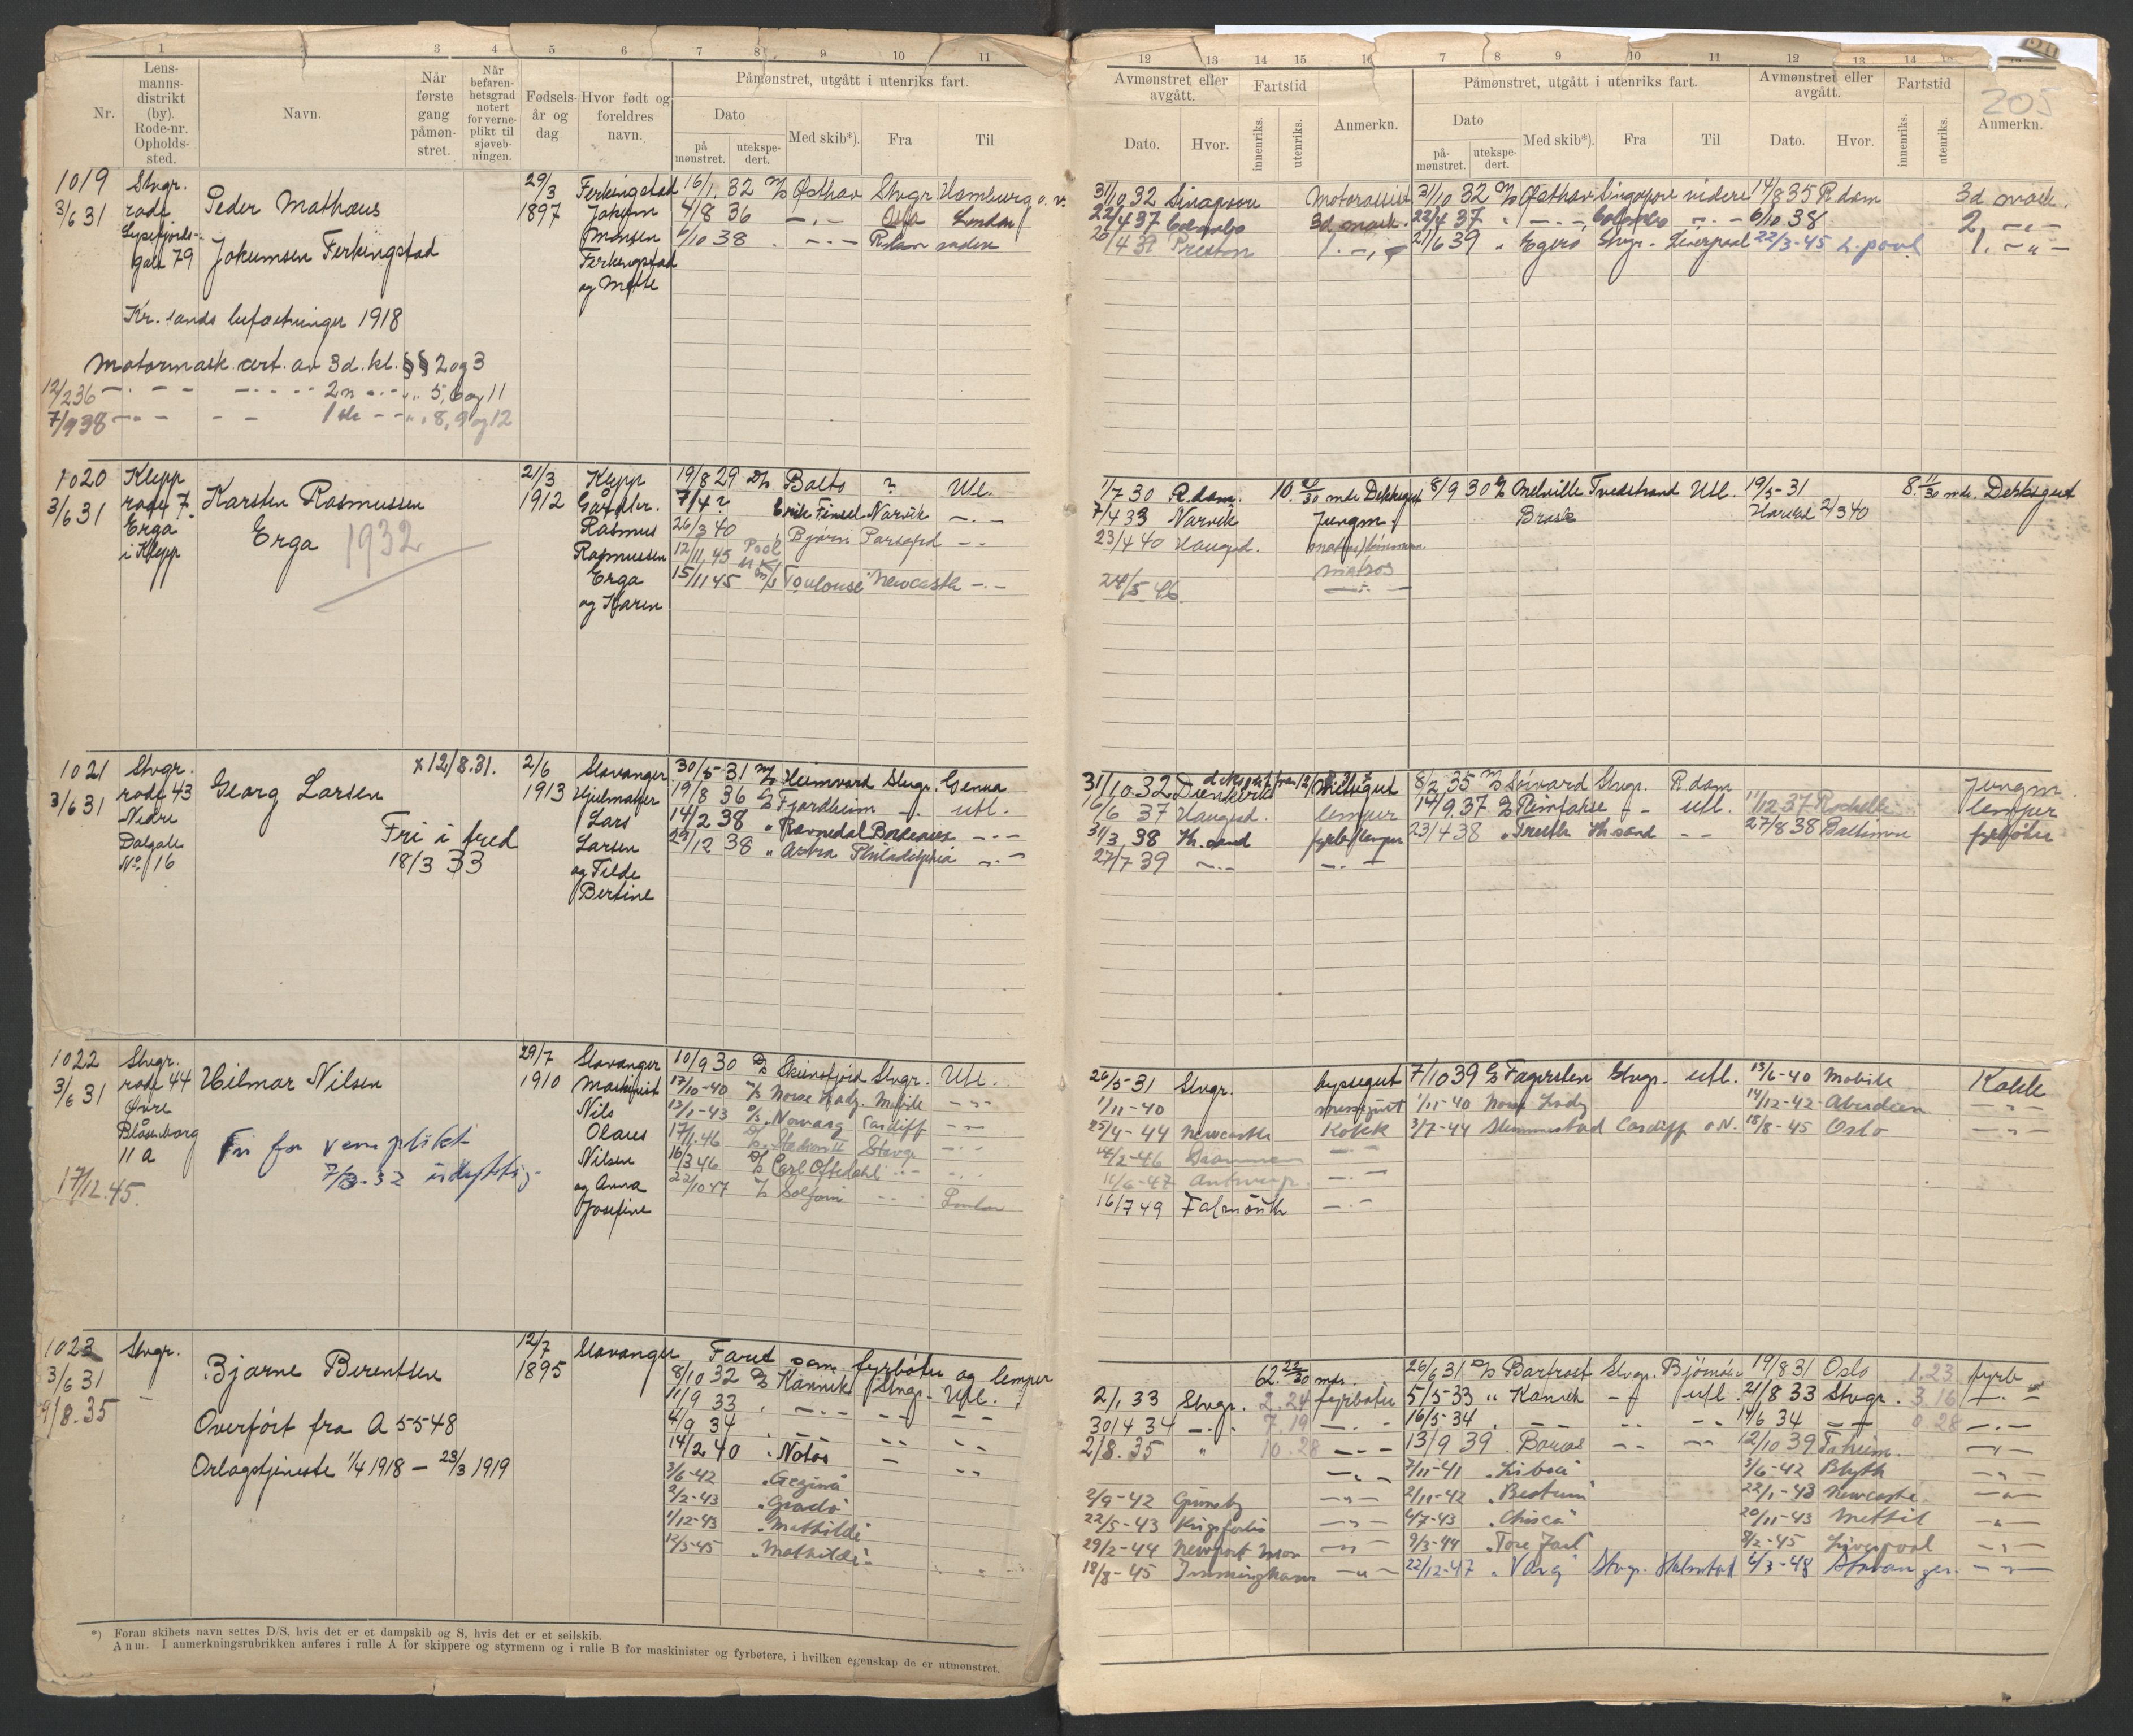 1 2 3 4 5 6 7 8 9 10 11
Nr.
Lens-
manns-
distrikt
(by).
Rode-nr.
Opholds-
sted.
Navn.
Når
første
gang
påmøn-
stret.
Når
befaren-
hetsgrad
notert
for verne-
plikt til
sjøveb-
ningen.
Fødsels-
år og
dag
Hvor født og
foreldres
navn.
Påmønstret, utgått i utenriks fart.
Dato
på
mønstret.
utekspe-
dert.
Med skib*).
Fra
Til
12 13 14 15 16 7 8 9 10 11 12 13 14
Avmønstret eller
avgått.
Fartstid
Dato.
Hvor.
innenriks.
utenriks.
Anmerkn.
Påmønstret, utgått i utenriks fart.
Dato
på-
mønstret.
utekspe-
dert.
Med skib*).
Fra
Til
Avmønstret eller
avgått.
Dato.
Hvor.
Fartstid
innenriks.
utenriks.
Anmerkn.
205
1019
3/6 31
Stvgr.
rode
Lysefjords-
gate 79
Peder Mathæus
Jokumsen Ferkingstad
29/3
1897
Ferkingstad
Jokum
Monsen
Ferkingstad
og Mette
16/1 32 M/S Østhav Stvgr. Hamburg o.v.
4/8 36 -,- London
6/10 38 -- R.dam
Kr.sands befæstninger 1918
Motormask. cert. av 3d. kl. §§ 2 og 3
12/2 36 - - - 2n - 5, 6 og 11
7/9 38 - - - 1ste - 8, 9 og 12
31/10 32 Motorassist 31/10 32 M/S Østhav Singapore videre 14/8 35 R.dam 3d. mask.
22/4 37 Colombo 3d. mask. 22/4 37 Colombo 6/10 38 2. -"-
26/4 39 Preston 1. -,- 21/6 39 " Egerø Stvgr. Liverpool 22/3-45 L.pool 1. -"-
1020
3/6 31
Klepp
rode 7.
Erga
i Klepp
Karsten Rasmussen
Erga 1932
21/3
1912
Klepp
Gårdbr.
Rasmus
Rasmussen
Erga
og Karen
19/8 29 D/S Balto ? Utl.
7/4 ? Narvik -.-
26/3 40 " Bjørn
12/11 45 Pool
15/11 45 M/S Toulouse Newcastle -.-
1/7 30 R.dam. Dekksgut 8/9 30 D/S Melville Tvedestrand Utl. 19/5-31 Dekksgut
7/4 33 Narvik Jungm.
23/4 40 Haugsd. matros
24/5 46 -.-
1021
3/6 31
Stvgr.
rode 43
Nedre
Dalgate
No 16
Georg Larsen
x12/8.31.
Fri i fred
18/3 33
2/6
1913
Stavanger
Hjulmaker
Lars
Larsen
og Tilde
Bertine
30/5-31 M/S Heimvard Stvgr. Genua
19/8 36 D/S Fjordheim -. utl.
14/2 38 " Ravnedal Bordeaux -.-
29/12 38 " Astra Philadelphia -.-
31/10 32 8/2 35 M/S Sørvard Stvgr. R.dam Jungm.
16/6 37 Haugsd. lemper 14/9 37 - - utl. 11/12 37 Rochelle lemper
31/3 38 Kr.sand 23/4 38 " Truth Kr.sand - - 27/8 38 Baltimore fyrbøter
27/7 39 -.- -.-
1022
3/6 31
Stvgr.
rode 44
Øvre
Blåsenborg
11 a
17/12.45.
Hilmar Nilsen
Fri for verneplikt
7/3-32 udyktig
29/7
1910
Stavanger
Maskinist
Nils
Olaus
Nilsen
og Anna
Josefine
10/9 30 D/S Stvgr. Utl.
17/10-40 M/S Norse Lady. Mobile -"-
13/1-43 D/S Norvarg Cardiff -"-
17/1.46 Stavgr -.-
16/3 46 D/S Carl Oftedahl -.-
22/10 47 Solfonn London
26/5-31 Stvgr. byssegut 7/10 39 D/S Fagersten Stvgr. utl. 13/6-40 Mobile Kokk
1/11-40 1/11-40 Norse Lady 14/12-42 Aberdeen -"-
25/4-44 Newcastle Kokk 3/7-44 Slemmestad Cardiff o.v. 18/8-45 Oslo -"-
14/2-46 -.-
11/6-47 Antwerp. -.-
16/7 49 Falmouth -.-
1023
3/6 31
9/8.35
Stvgr.
Bjarne Berentsen
Overført fra A 5548
Orlogstjeneste 1/4 1918 - 23/3 1919
12/7
1895
Stavanger
Faret som fyrbøter og lemper
8/10 32 D/S Kannik Stvgr. Utl.
11/9 33 -.- -- --
4/9 34 -- -- --
14/2 40 " Notos - --
3/6-42
2/2-43
1/12-43 "Mathilde"
12/3-45 "Mathilde"
62. 22/30 mdr. 26/6 31 Stvgr. 19/8 31 Oslo 1.23 fyrb
2/1 33 Stvgr. 2.24 fyrbøter 5/5-33 " Kannik - utl. 21/8 33 Stvgr. 3.16 -.-
30/4 34 -.- 7.19 -.- 16/5-34 -- -- 14/6 34 -- 0.28 -.-
2/8.35 " 10.28 -.- 13/9 39 -- -- 12/10 39 -"-
-.- 7/11-41 "Lisbeth" 3/6-42 Blyth -"-
2/9-42 Grimsby -"- 2/11-42 "Bestum" 22/1-43 Newcastle -"-
22/5-43 -"- 4/7-43 20/11-43 Methil -"-
29/2-44 Newport Mon -"- 9/3-44 "Tore Jarl" 8/2-45 Liverpool -"-
18/8-45 Immingham -"- 22/12-47 "Varg" Stvgr. Halmstad 6/3-48 Stavanger. -"-
*) Foran skibets navn settes D/S, hvis det er et dampskib og S, hvis det er et seilskib.
Anm. I anmerkningsrubrikken anføres i rulle A for skippere og styrmenn og i rulle B for maskinister og fyrbøtere, i hvilken egenskap de er utmønstret.